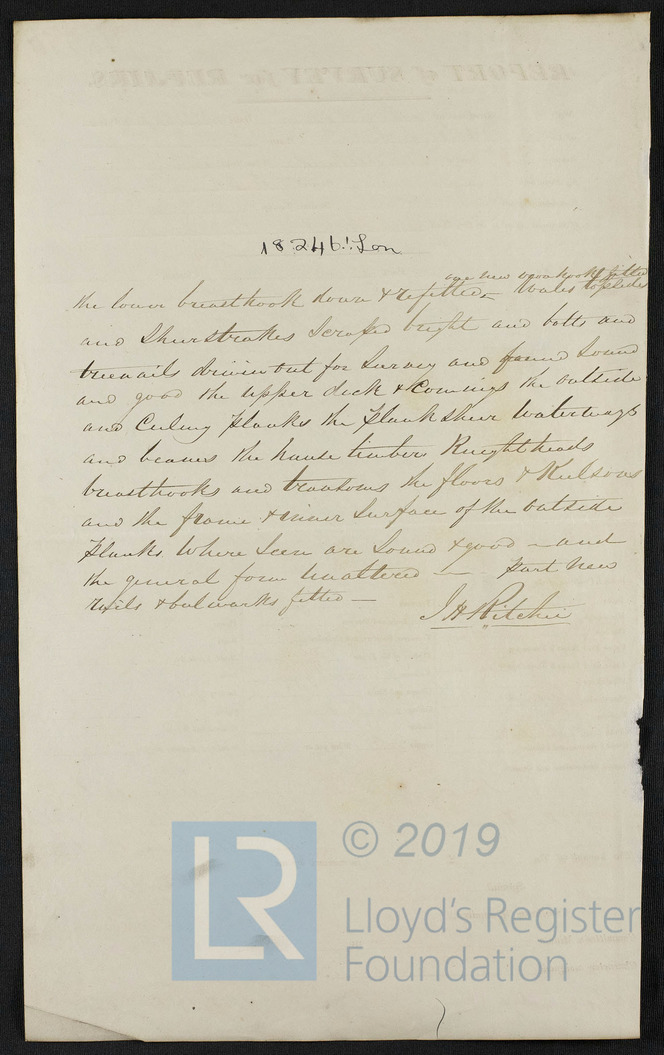 REPORT of SURVEY for REPAIRS.
18246! Lon
one new crook fitted
the lower breasthook down & refitted - Wales topsides
and Sheerstrakes Scraped bright and bolts and
treenails driven out for Survey and found Sound
and good the upper deck & Comings the outside
and Ceiling planks the plank sheer Waterways
and beams the hause timbers Knightheads
breasthooks and transoms the floors & Keelsons
and the frame & inner Surface of the outside
planks Where Seen are Sound & good - and
the general form Unaltered - part New
rails & bulwarks fitted -
J H Ritchie
© 2019
LR
Lloyd's Register
Foundation